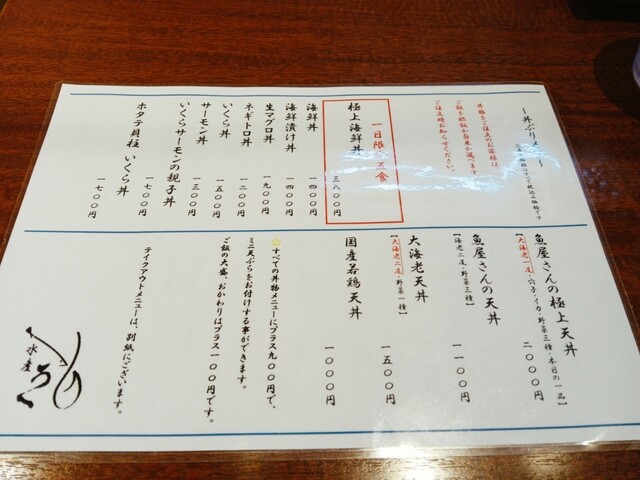 ～丼ぶりメニュー～
丼物をご注文のお客様は、
ご飯を酢飯か白米か選べます。
ご注文時お知らせください。
一日限定 食
極上海鮮丼 三八〇〇円
海鮮丼 一四〇〇円
海鮮漬け丼 一四〇〇円
生マグロ丼 一九〇〇円
ネギトロ丼 一二〇〇円
いくら丼 一五〇〇円
サーモン丼 一三〇〇円
いくらサーモンの親子丼 一七〇〇円
ホタテ貝柱いくら丼 一七〇〇円
魚屋さんの極上天丼 二〇〇〇円
【大海老一尾・穴子・イカ・野菜三種・本日の一品】
魚屋さんの天丼 一一〇〇円
【海老二尾・野菜三種】
大海老天丼 一五〇〇円
【大海老二尾・野菜一種】
国産若鶏天丼 一〇〇〇円
☆すべての丼物メニューにプラス九〇〇円で、
ミニ天ぷらをお付けする事ができます。
ご飯の大盛、おかわりはプラス一〇〇円です。
テイクアウトメニューは、別紙にございます。
水産